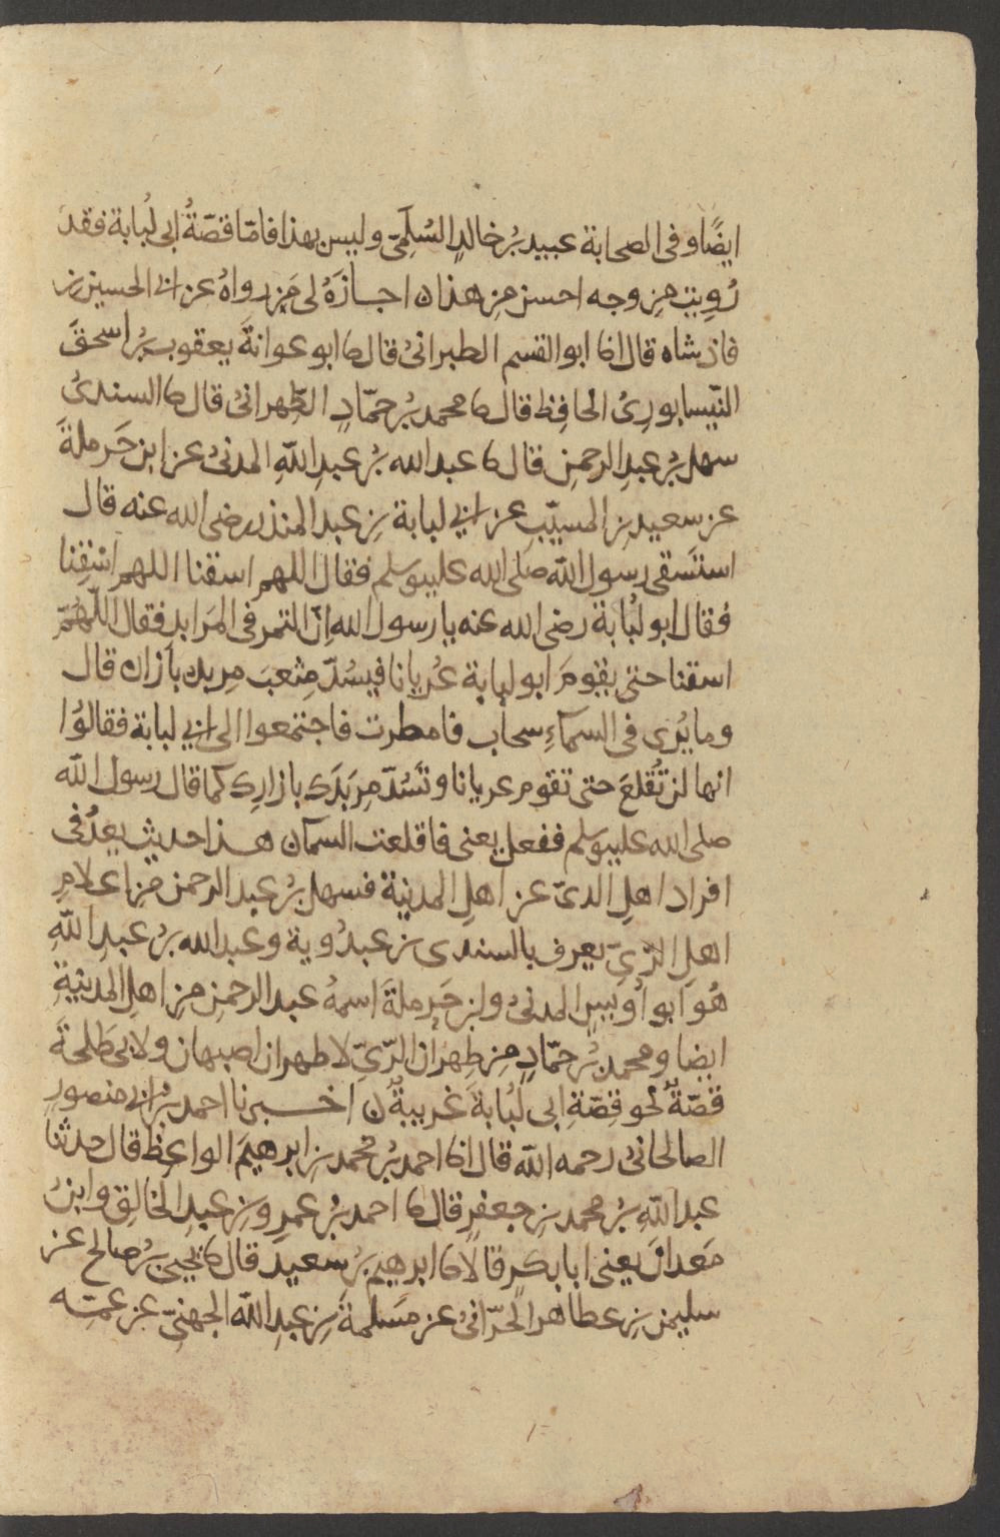 ايضًا وفى الصحابة عبيد بنُ خالدٍ السُّلَمِىّ وليس بهذا فامّا قصّةُ ابى لُبابة فقد
رُوِيت مِن وجه احسن مِن هذا ن اجازَهُ لى مَن رواهُ عن ابى الحسين بن
فاذشاه قال انا ابو القسم الطبرانىُّ قال نا ابو عوانةَ يعقوب بنُ اسحقَ
النّيسابورِىُّ الحافِظ قال نا محمد بنُ حمّادٍ الطِّهرانىُّ قال نا السندىُّ
سهل بنُ عبدِ الرحمنِ قال نا عبد الله بنُ عبدِ اللّهِ المدنىُّ عن ابن حَرملةَ
عن سعيد بن المسيّب عن ابى لبابة بنِ عبد المنذر رضى الله عنه قال
استَسقى رسول اللّه صلى الله عليه وسلم فقال اللهم اسقنا اللهم اسْقِنا
فقال ابو لُبابة رضى الله عنه يا رسول الله اِنّ التمر فى المَرابد فقال اللّهمّ
اسقنا حتى يقومَ ابو لبابة عُريانا فيسُدّ مِثعبَ مِربده بازاره قال
وما يُرى فى السماءِ سحاب فامطرت فاجتمعوا الى ابى لبابة فقالوُا
انها لن تُقلعَ حتى تقوم عريانا وتَسُدّ مِربَدَك بازارِك كما قال رسول اللّه
صلى الله عليه وسلم ففعل يعنى فاقلعت السماء ن هذا حديث يعدُّ فى
افراد اهلِ الرىّ عن اهلِ المدينة فسهل بنُ عبد الرحمن مِن اعلامِ
اهلِ الرّىِّ يعرف بالسندى بن عبدُوية وعبد الله بنُ عبدِ اللّهِ
هُو ابو اُويسٍ المدنىُّ وابن حَرملةَ اسمهُ عبد الرحمنِ مِن اهلِ المدينةِ
ايضا ومحمد بنُ حمّادٍ مِن طِهران الرّىِّ لا طهران اصبهان ولابى طَلحةَ
قصّةٌ نحو قِصّةِ ابى لُبابةَ غريبةٌ ن اخبرنا احمد بنُ ابى منصورٍ
الصالحانىُّ رحمه اللّه قال انا احمد بنُ محمد بن ابرهيمَ الواعِظ قال حدثنا
عبد اللّهِ بنُ محمد بن جعفرٍ قال نا احمد بنُ عمرٍو بنِ عبدِ الخالِق وابنُ
مَعدانَ يعنى ابا بكرٍ قالا نا ابرهيم بنُ سعيد قال نا يحيى بنُ صالح عن
سليمن بنِ عطاء الحرّانىُّ عن مَسلمةَ بنِ عبدِ اللّه الجهنىّ عن عمّه